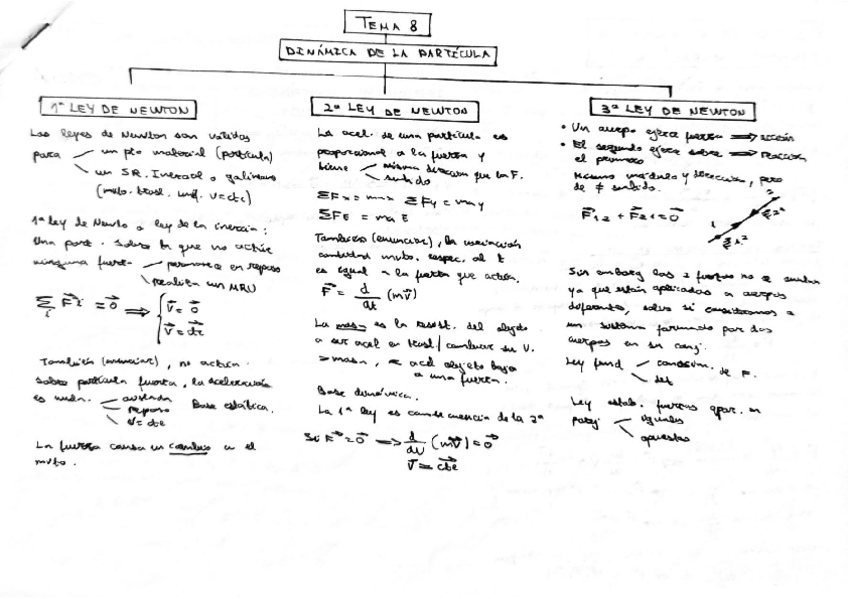 TEMA 8
DINÁMICA DE LA PARTÍCULA
1ª LEY DE NEWTON
Las leyes de Newton son válidas
para un pto material (partícula)
un SR. Inercial o galileano
(mvto. trasl. unif. v=cte)
1ª ley de Newto o ley de la inercia:
Una part. sobre la que no actúe
ninguna fuerz permanece en reposo
realiza un MRU
∑ F⃗i = 0⃗ ⟹ { v⃗ = 0⃗
v⃗ = cte
También (enunciar), no actúa
sobre partícula fuerza, la aceleración
es nula. aislada
reposo
v = cte
Base estática.
La fuerza causa un cambio en el
mvto.
2ª LEY DE NEWTON
La acel. de una partícula es
proporcional a la fuerza y
tiene misma dirección que la F.
sentido
∑Fx = max ∑Fy = may
∑Fz = maz
También (enunciar), la variación
cantidad mvto. respec. al t
es igual a la fuerza que actúa
F⃗ = d/dt (mv⃗)
La masa es la resist. del objeto
a ser acel en trasl/ cambiar su V.
>masa, < acel objeto bajo
a una fuerza.
Base dinámica.
La 1ª ley es consecuencia de la 2ª
Si F⃗ = 0⃗ ⟹ d/dv (mv⃗) = 0⃗
v⃗ = cte
3ª LEY DE NEWTON
• Un cuerpo ejerce fuerza ⟹ acción
• El segundo ejerce sobre ⟹ reacción
el primero
Mismo módulo y dirección, pero
de ≠ sentido.
F⃗12 + F⃗21 = 0⃗
Sin embarg las 2 fuerzas no se anulan
ya que están aplicadas a cuerpos
diferentes, salvo si consideramos a
un sistema formado por dos
cuerpos en su conj.
Ley fund de F.
Ley estab. fuerzas apar. en
parej iguales
opuestas